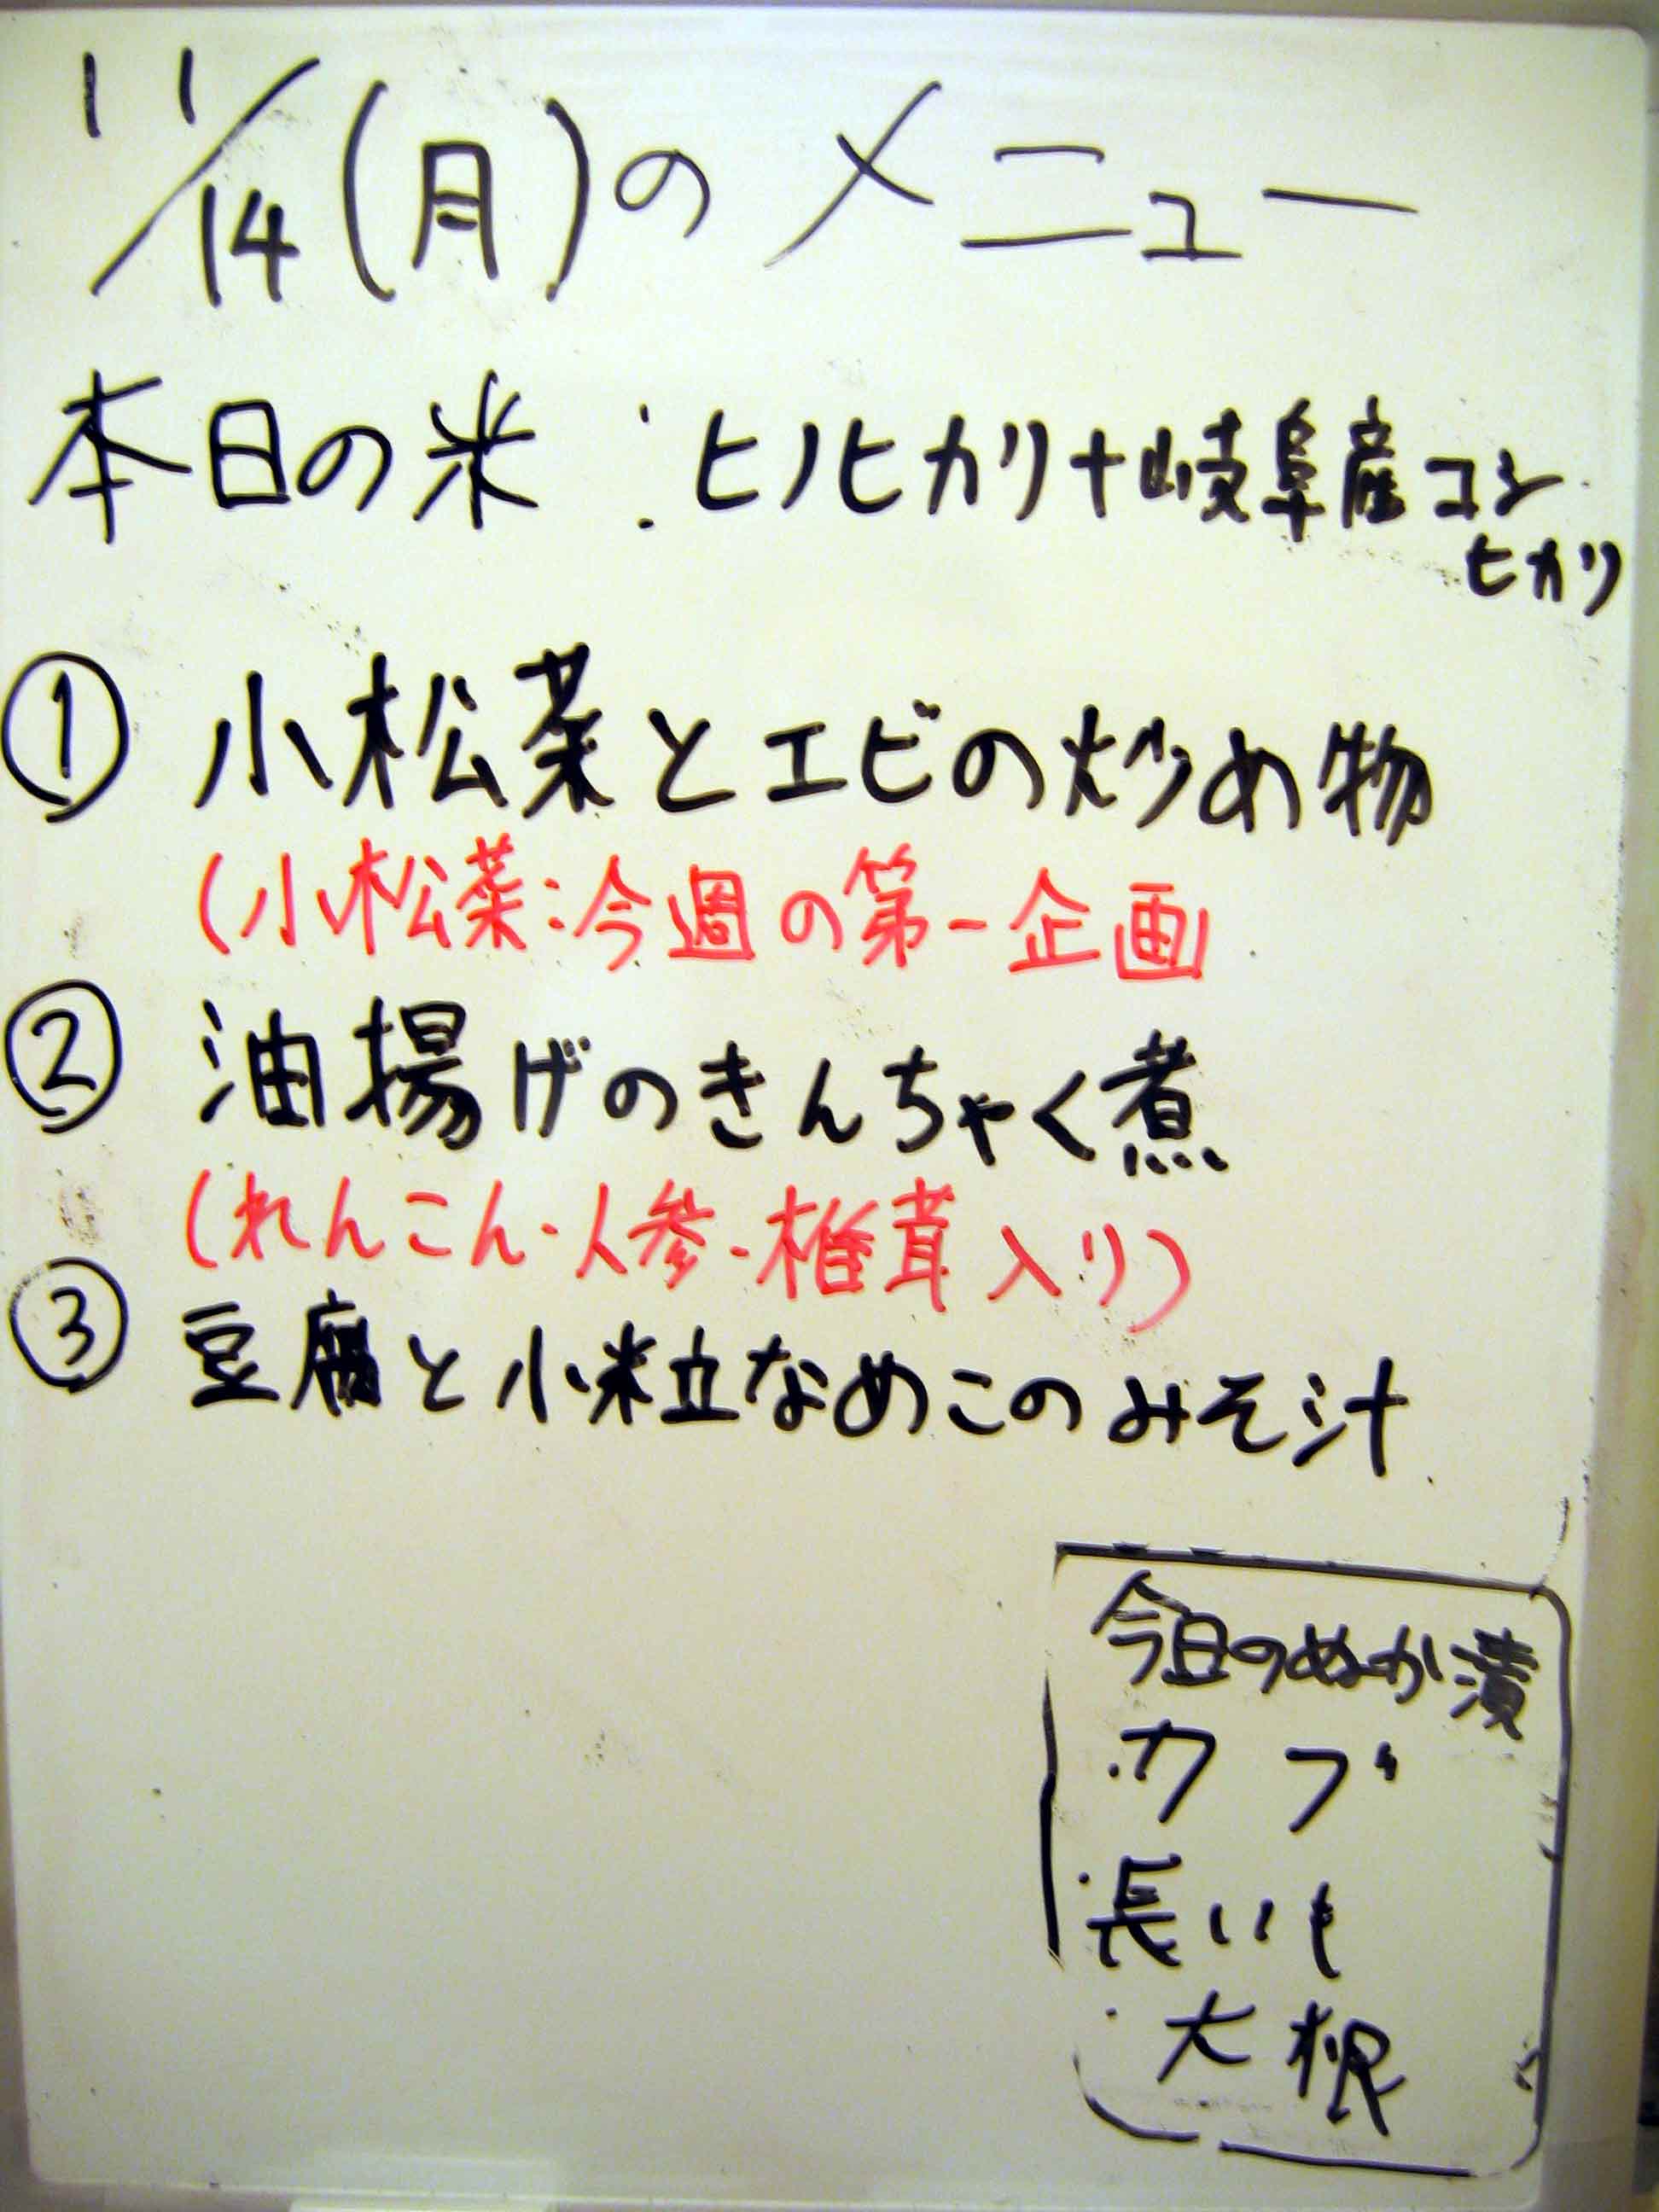 11/14(月)のメニュー
本日の米:ヒノヒカリ+岐阜産コシ
ヒカリ
① 小松菜とエビの炒め物
(小松菜:今週の第一企画
② 油揚げのきんちゃく煮
(れんこん・人参・椎茸入り)
③ 豆腐と小粒なめこのみそ汁
今日のぬか漬
・カブ
・長いも
・大根